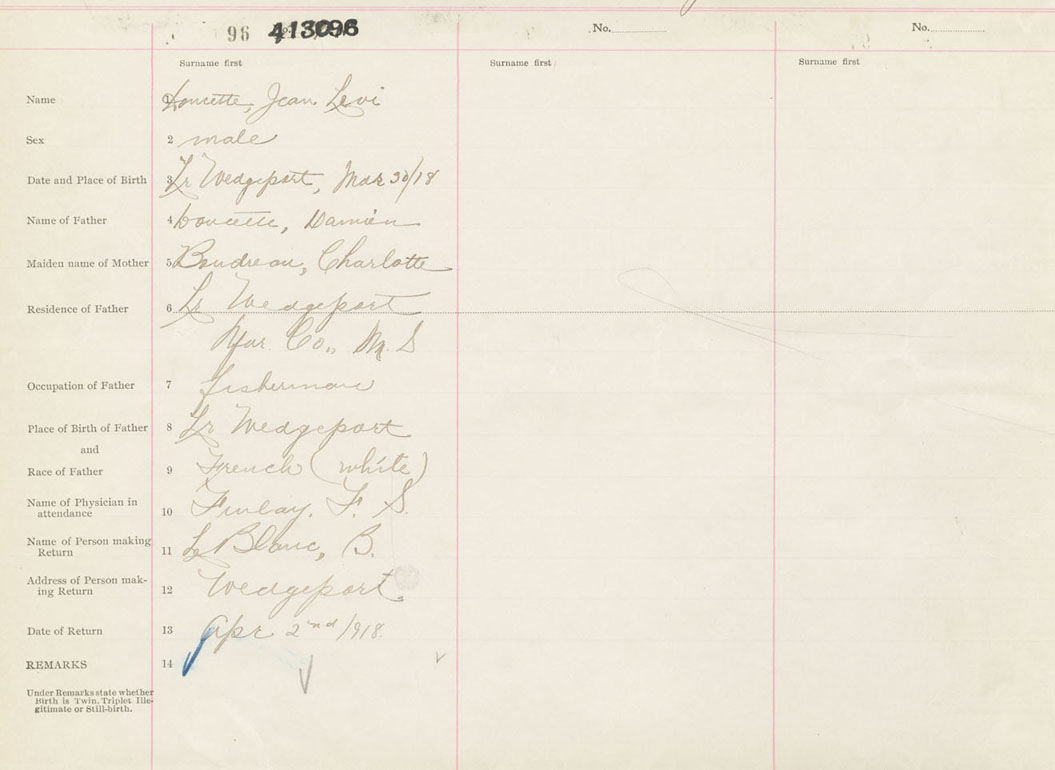 96 413096
No.
No.
Surname first
Surname first
Surname first
Name 1 Doucette, Jean Levi
Sex 2 male
Date and Place of Birth 3 Lr Wedgeport, Mar 30/18
Name of Father 4 Doucette, Damien
Maiden name of Mother 5 Boudreau, Charlotte
Residence of Father 6 Lr Wedgeport
Yar. Co., N. S
Occupation of Father 7 fisherman
Place of Birth of Father 8 Lr Wedgeport
and
Race of Father 9 French (white)
Name of Physician in
attendance 10 Finlay. F. S.
Name of Person making
Return 11 Le Blanc, B.
Address of Person mak-
ing Return 12 Wedgeport.
Date of Return 13 Apr 2nd/918.
REMARKS 14
Under Remarks state whether
Birth is Twin, Triplet, Ille-
gitimate or Still-birth.